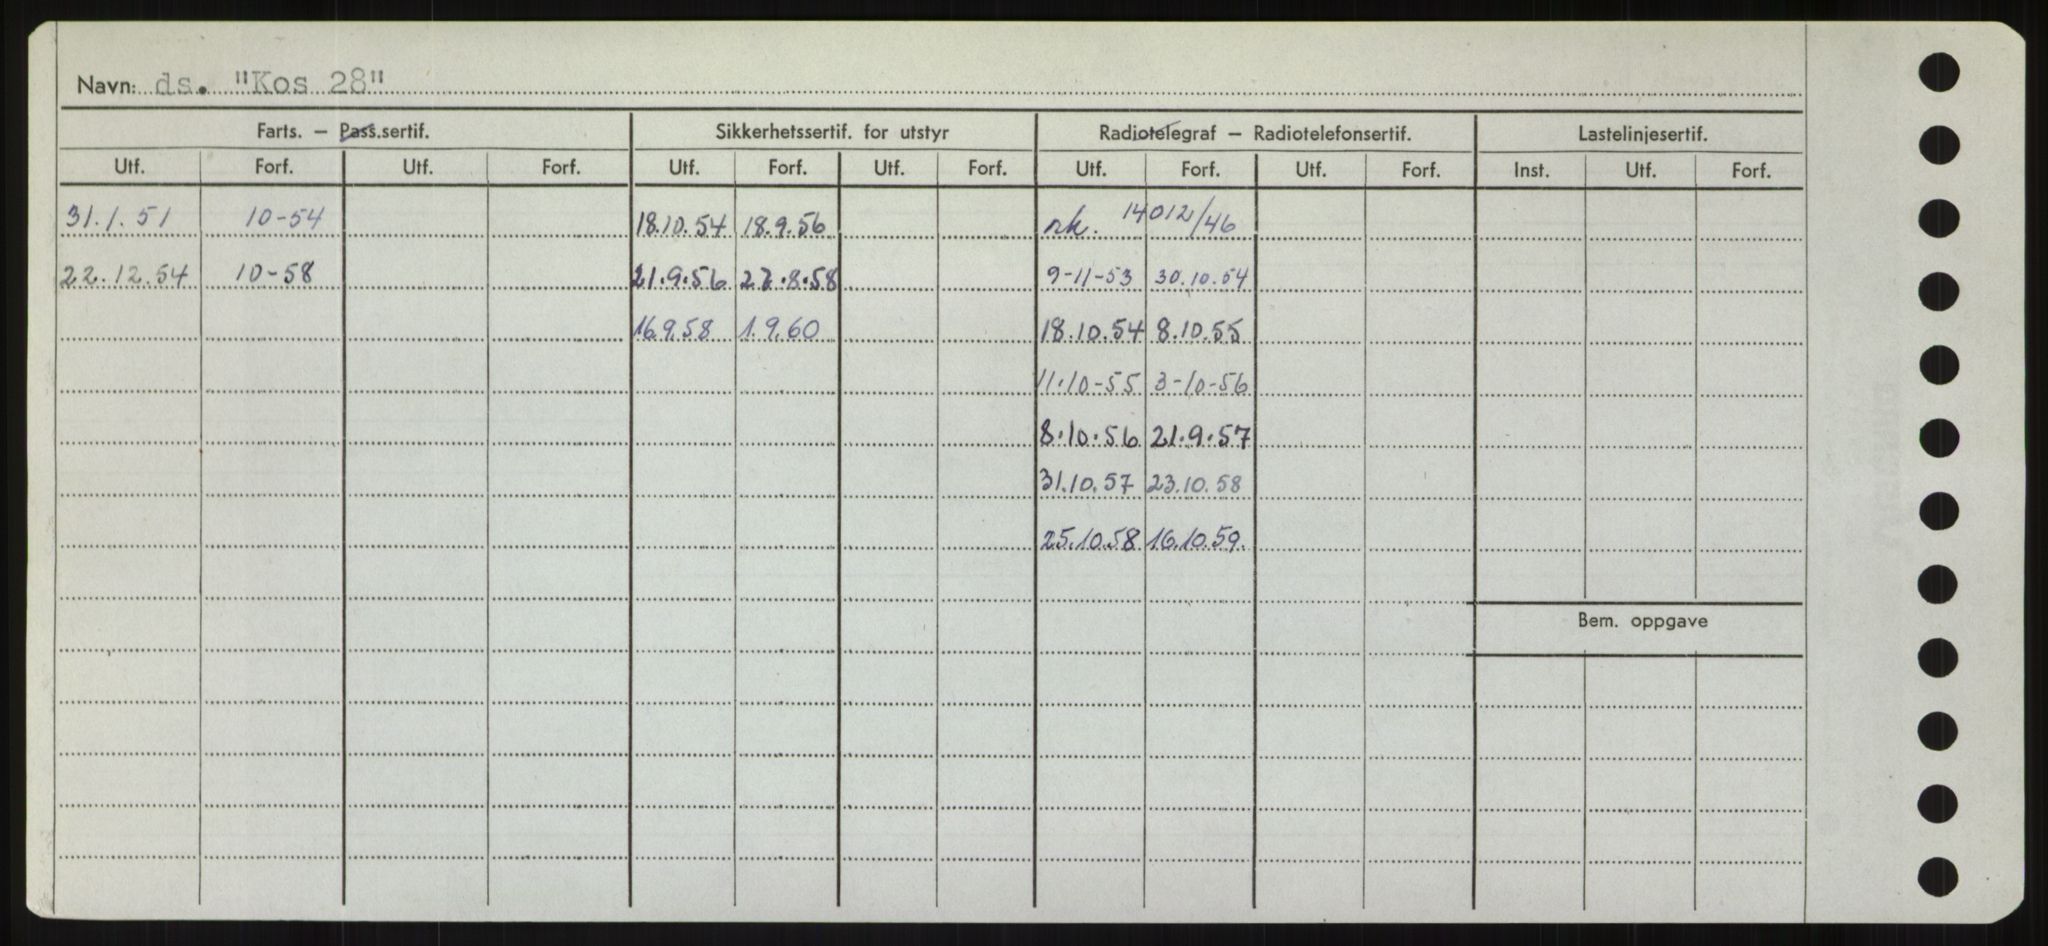 Navn: ds. "Kos 28"
Farts. — Pass.sertif. Sikkerhetssertif. for utstyr Radiotelegraf — Radiotelefonsertif. Lastelinjesertif.
Utf. Forf. Utf. Forf. Utf. Forf. Utf. Forf. Utf. Forf. Utf. Forf. Inst. Utf. Forf.
31.1.51 10-54 18.10.54 18.9.56 nk. 14012/46
22.12.54 10-58 21.9.56 27.8.58 9-11-53 30.10.54
16.9.58 1.9.60 18.10.54 8.10.55
11.10-55 3-10-56
8.10.56 21.9.57
31.10.57 23.10.58
25.10.58 16.10.59.
Bem. oppgave